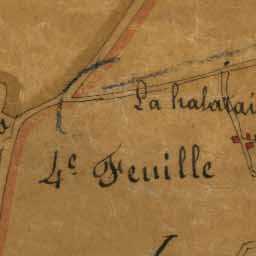 La halarai
4e Feuille